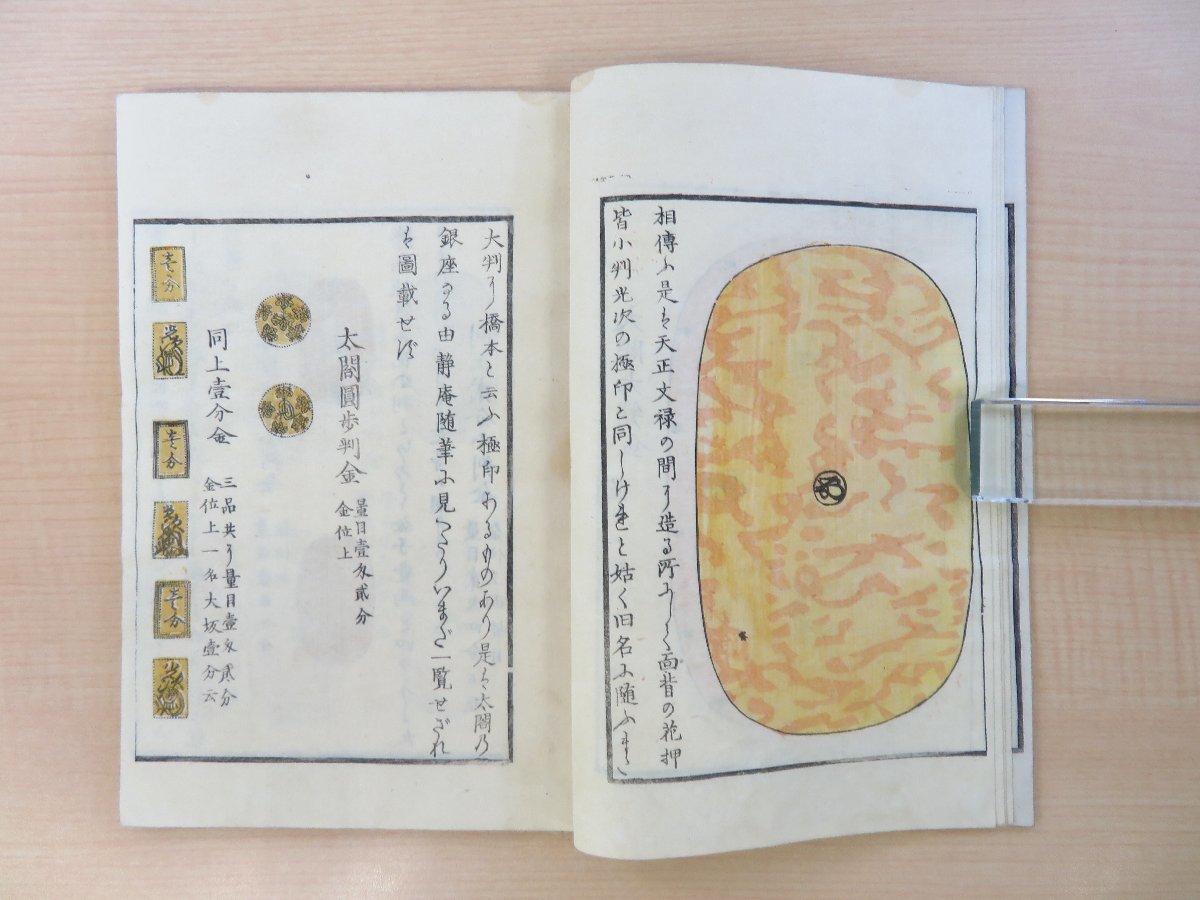 相傳ふ是は天正文禄の間に造る所にして面背の花押
皆小判光次の極印と同しけれと姑く旧名に随ふ
大判に橋本と云ふ極印あるものあり是は太閤乃
銀座なる由静庵随筆に見へたりいまた一覧せざれ
は圖載せす
太閤圓歩判金
量目壹匁貳分
金位上
同上壹分金
三品共に量目壹匁貳分
金位上一名大坂壹分云
壹分
壹分
壹分